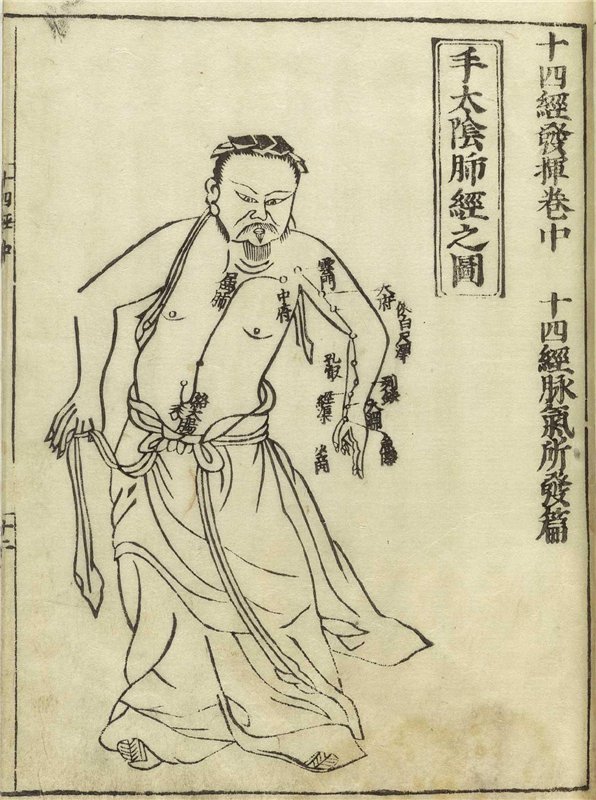 十四經發揮卷中 十四經脉氣所發篇
手太陰肺經之圖
雲門
中府
天府
俠白尺澤
孔㝡
列缺
經渠
太淵
魚際
少商
屬肺
絡大腸
十四經中
十二